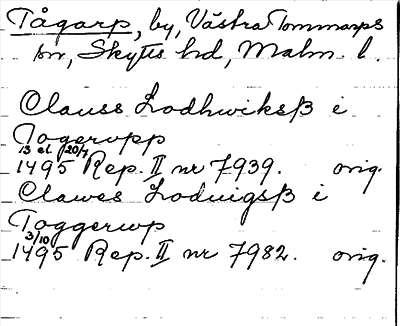 Tågarp, by, Västra Tommarps
sn, Skytts hd, Malm. l.
Clauss Lodhwiksß i
Togerupp
13 el. 20/7
1495 Rep. II nr 7939. orig.
Clawes Lodvigsß i
Toggerwp
3/10
1495 Rep. II nr 7982. orig.